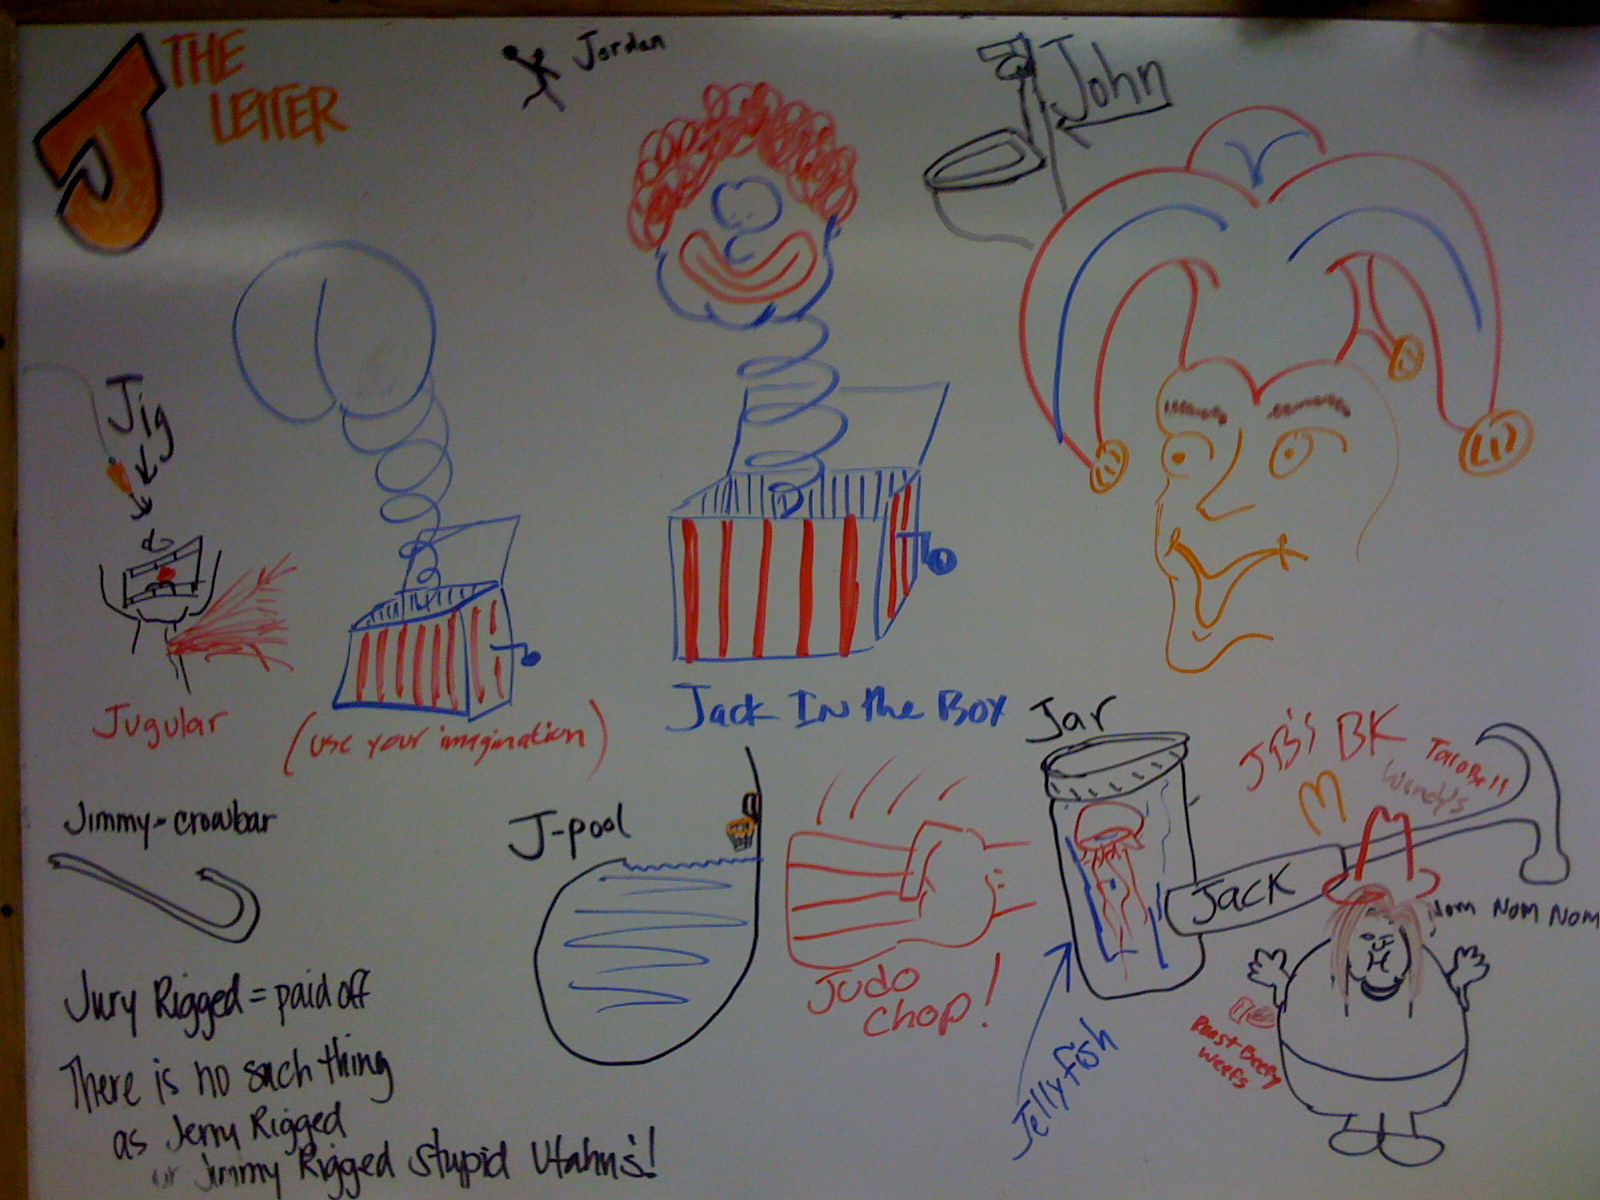 J THE
LETTER
Jordan
John
Jig
Jugular
(use your imagination)
Jack In the Box
Jar
JB's BK Taco Bell
Wendy's
M
Jimmy-crowbar
J-pool
Judo
chop!
JACK
Nom Nom Nom
Roast Beefy
Weefs
Jellyfish
Jury Rigged = paid off
There is no such thing
as Jerry Rigged
or Jimmy Rigged stupid Utahns!